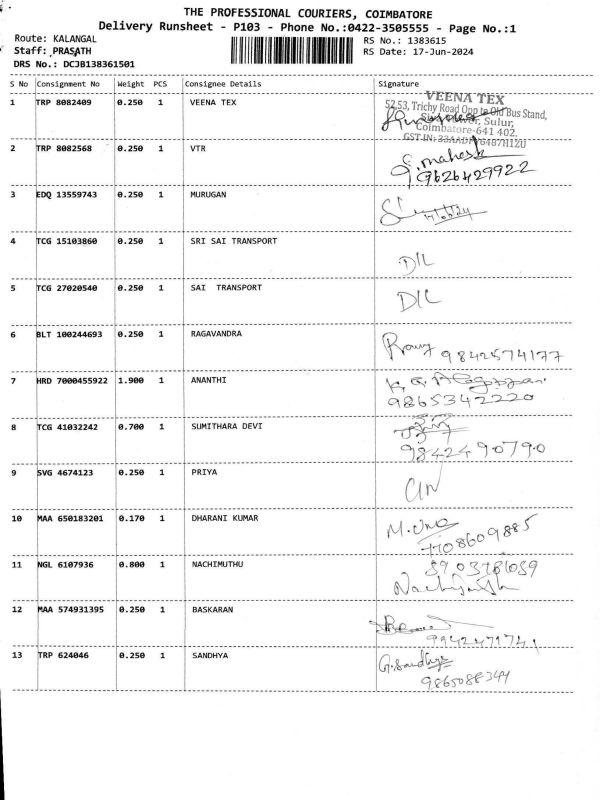 THE PROFESSIONAL COURIERS, COIMBATORE
Delivery Runsheet - P103 - Phone No.:0422-3505555 - Page No.:1
Route: KALANGAL RS No.: 1383615
Staff: PRASATH RS Date: 17-Jun-2024
DRS No.: DCJB138361501
S No Consignment No Weight PCS Consignee Details Signature
1 TRP 8082409 0.250 1 VEENA TEX
VEENA TEX
52,53, Trichy Road Opp to Old Bus Stand,
Sulur,
Coimbatore-641 402.
2 TRP 8082568 0.250 1 VTR
G. mahesh
9626429922
3 EDQ 13559743 0.250 1 MURUGAN
4 TCG 15103860 0.250 1 SRI SAI TRANSPORT
D/L
5 TCG 27020540 0.250 1 SAI TRANSPORT
D/L
6 BLT 100244693 0.250 1 RAGAVANDRA
9842574177
7 HRD 7000455922 1.900 1 ANANTHI
9865342220
8 TCG 41032242 0.700 1 SUMITHARA DEVI
9842490790
9 SVG 4674123 0.250 1 PRIYA
10 MAA 650183201 0.170 1 DHARANI KUMAR
M. Uma
7708609885
11 NGL 6107936 0.800 1 NACHIMUTHU
12 MAA 574931395 0.250 1 BASKARAN
9942471741
13 TRP 624046 0.250 1 SANDHYA
G. Sandhya
9865088344